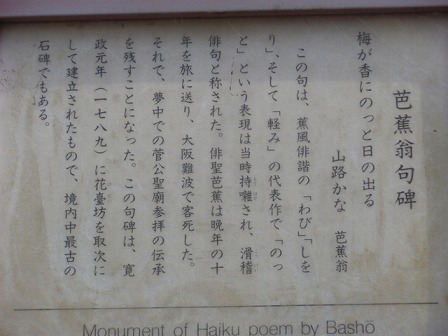 芭蕉翁句碑
梅が香にのっと日の出る
山路かな　芭蕉翁
この句は、蕉風俳諧の「わび」「しを
り」、そして「軽み」の代表作で「のっ
と」という表現は当時持囃され、滑稽
俳句と称された。俳聖芭蕉は晩年の十
年を旅に送り、大阪難波で客死した。
それで、夢中での菅公聖廟参拝の伝承
を残すことになった。この句碑は、寛
政元年（一七八九）に花臺坊を取次に
して建立されたもので、境内中最古の
石碑でもある。
Monument of Haiku poem by Bashō